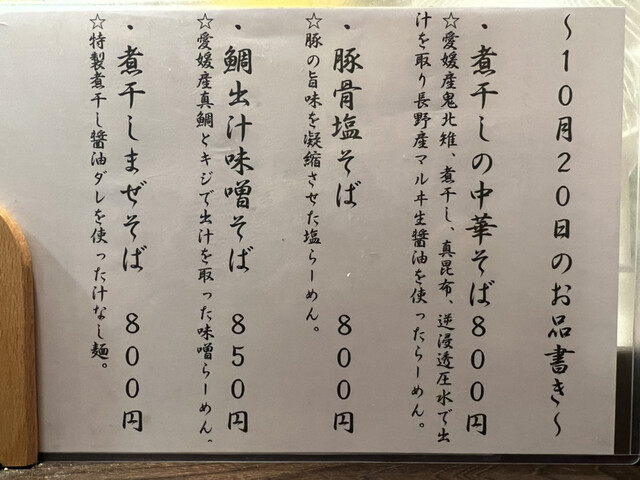 ～１０月２０日のお品書き～
・煮干しの中華そば８００円
☆愛媛産鬼北雉、煮干し、真昆布、逆浸透圧水で出
汁を取り長野産マルヰ生醤油を使ったらーめん。
・豚骨塩そば　８００円
☆豚の旨味を凝縮させた塩らーめん。
・鯛出汁味噌そば　８５０円
☆愛媛産真鯛とキジで出汁を取った味噌らーめん。
・煮干しまぜそば　８００円
☆特製煮干し醬油ダレを使った汁なし麺。